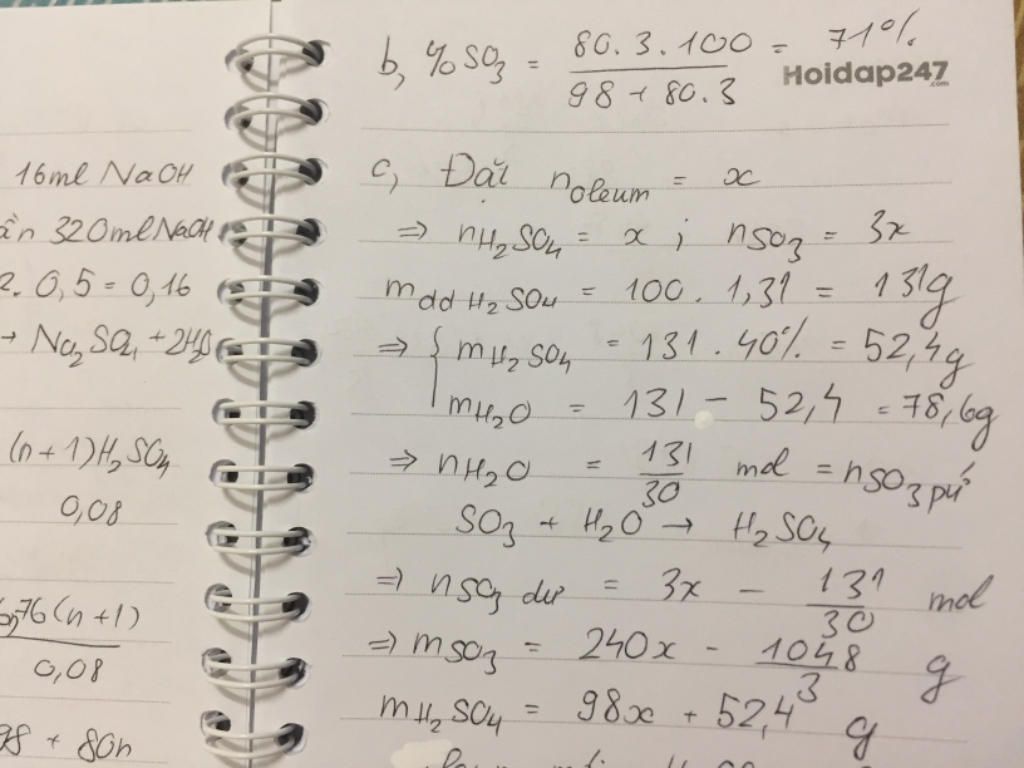 16ml NaOH
320ml NaOH
2. 0,5 = 0,16
→ Na2SO4 + 2H2O
(n+1)H2SO4
0,08
76(n+1)
0,08
98 + 80n
b, %SO3 = 80.3.100 / 98 + 80.3 = 71%
Hoidap247
.com
c, Đặt n oleum = x
⇒ nH2SO4 = x ; nSO3 = 3x
m dd H2SO4 = 100. 1,31 = 131g
⇒ { mH2SO4 = 131. 40% = 52,4g
mH2O = 131 - 52,4 = 78,6g
⇒ nH2O = 131/30 mol = nSO3 pứ
SO3 + H2O → H2SO4
⇒ nSO3 dư = 3x - 131/30 mol
⇒ mSO3 = 240x - 1048/3 g
mH2SO4 = 98x + 52,4 g